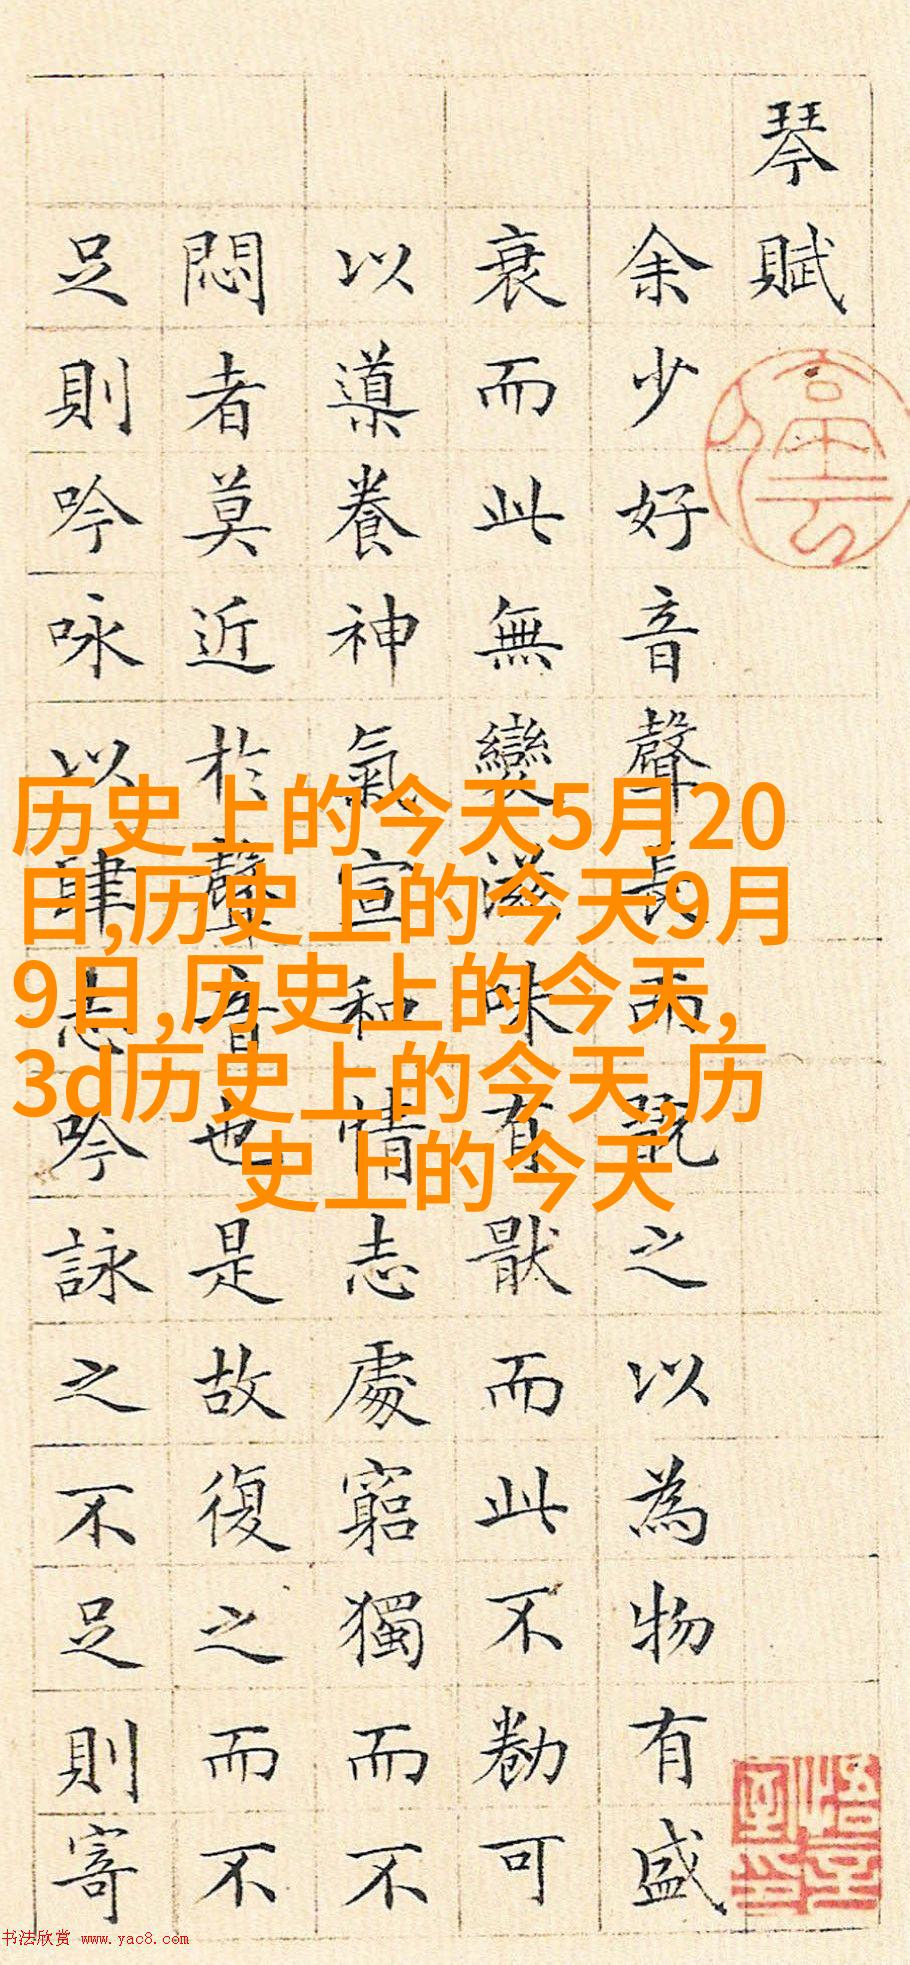 琴賦
余少好音聲長而翫之以為物有盛
衰而此無變滋味有猒而此不勌可
以導養神氣宣和情志處窮獨而不
悶者莫近於聲音也是故復之而不
足則吟咏以肆志吟詠之不足則寄
历史上的今天5月20
日,历史上的今天9月
9日,历史上的今天,
3d历史上的今天,历
史上的今天
书法欣赏 www.yac8.com